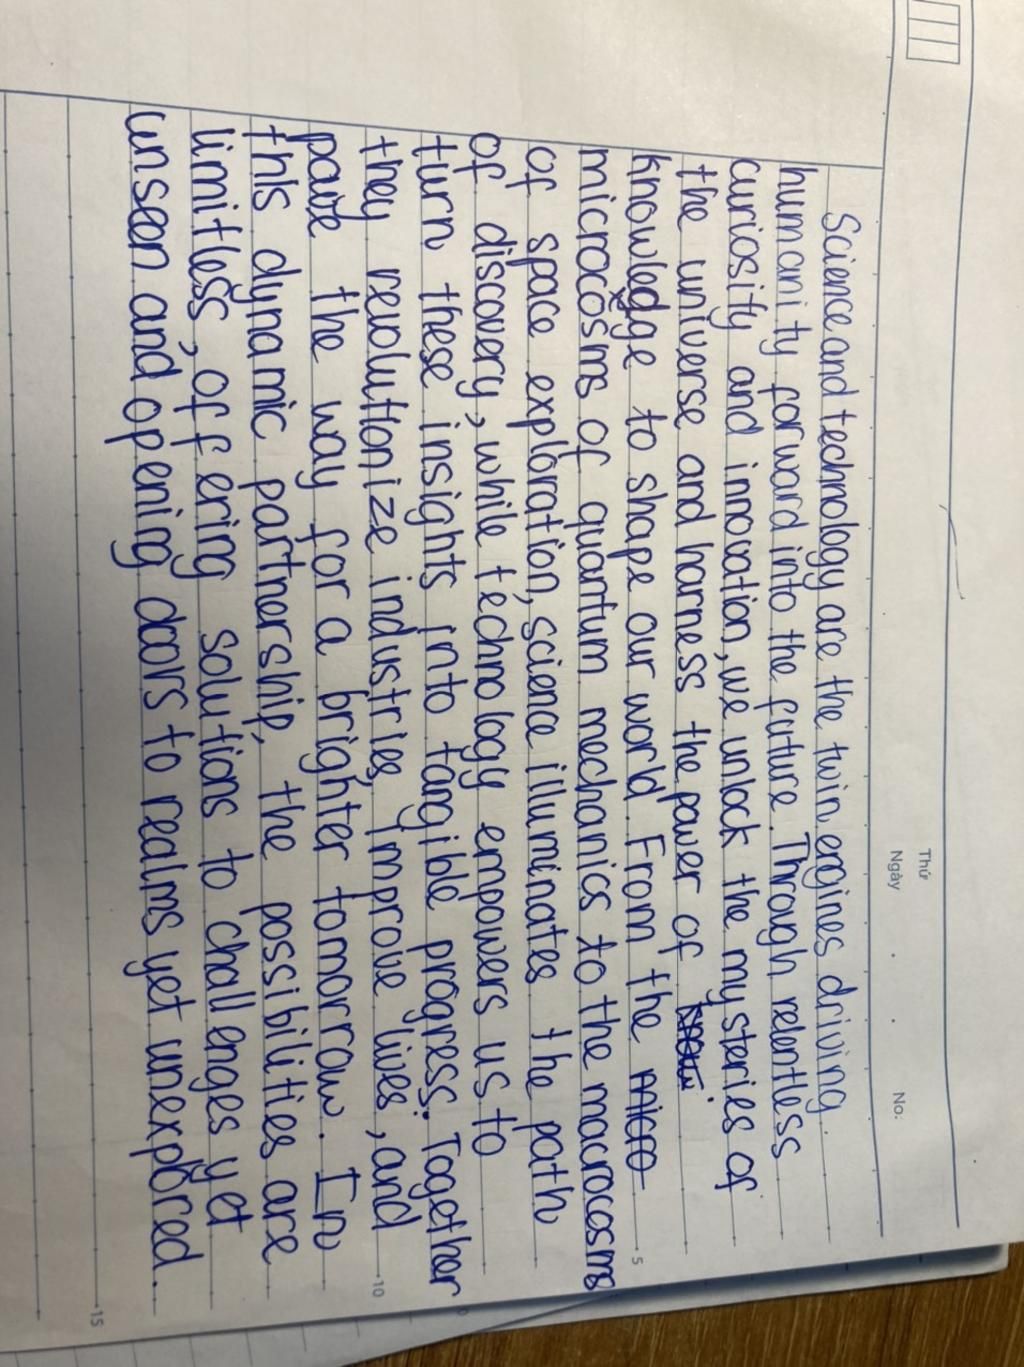 Thứ
Ngày . . No:
Science and technology are the twin engines driving
humanity forward into the future. Through relentless
curiosity and innovation, we unlock the mysteries of
the universe and harness the power of
knowledge to shape our world. From the micro
microcosms of quantum mechanics to the macrocosms
of space exploration, science illuminates the path
of discovery, while technology empowers us to
turn these insights into tangible progress. Together
they revolutionize industries, improve lives, and
pave the way for a brighter tomorrow. In
this dynamic partnership, the possibilities are
limitless, offering solutions to challenges yet
unseen and opening doors to realms yet unexplored.
5
10
15